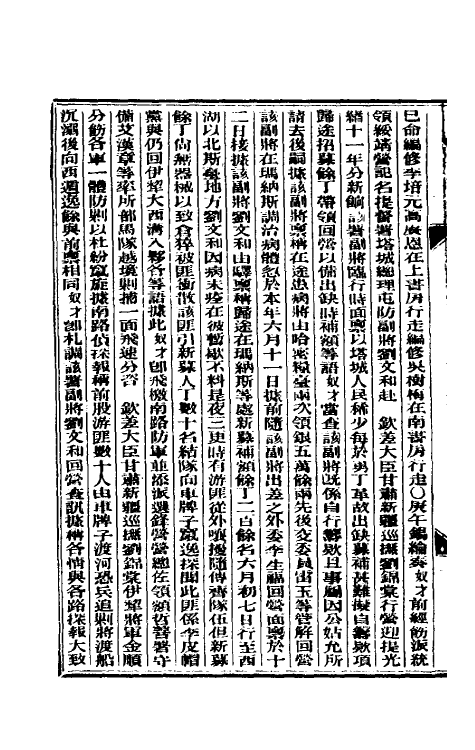 已命編修李培元高賡恩在上書房行走編修吳樹梅在南書房行走○庚午錫綸奏奴才前經飭派統
領綏靖營記名提督署塔城總理屯防副將劉文和赴 欽差大臣甘肅新疆巡撫劉錦棠行營迎提光
緒十一年分新餉該署副將臨行時面稟以塔城人民稀少每於勇丁革故出缺募補甚難擬自籌款項
歸途招募餘丁帶領回營以備出缺時補額等語奴才當查該副將既係自行籌款且事屬因公姑允所
請去後嗣據該副將稟稱在途患病將由哈密糧臺兩次領銀五萬餘兩先後交委員雷玉等管解回營
該副將在瑪納斯調治病體忽於本年六月十一日據前隨該副將出差之外委李生福回營面稟於十
二日接據該副將劉文和由驛稟稱歸途在瑪納斯等處新募補額餘丁二百餘名六月初七日行至西
湖以北斯龜地方劉文和因病未痊在彼暫歇不料是夜三更時有游匪從外嚷擾隨傳齊隊伍但新募
餘丁尚無器械以致倉猝被匪衝散該匪引新募人丁數十名結隊向車牌子竄逸探聞此匪係李皮帽
黨與仍回伊犂大西溝入夥各等語據此奴才卽飛檄南路防軍並添派選鋒營營總佐領額哲畚署守
備艾漢章等率所部馬隊越境剿捕一面飛速分咨 欽差大臣甘肅新疆巡撫劉錦棠伊犂將軍金順
分飭各軍一體防剿以杜紛竄旋據南路偵探報稱前股游匪數十人由車牌子渡河恐兵追剿將渡船
沉溺後向西遁逸餘與前稟相同奴才卽札調該署副將劉文和回營查訊據稱各情與各路探報大致